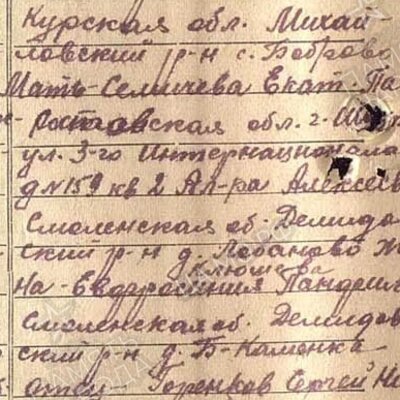 Курская обл. Михай
ловский р-н с. Боброво
Мать-Селичева Екат. Па
Ростовская обл. г. Ша
ул. 3-го Интернационала
д №159 кв 2 Ал-ра Алексеев
Смоленская об. Демидо
ский р-н д. Лобаново Ж
на - Евфросиния Панфил
Смоленская об. Демидов
ский р-н д. Б-Каменка -
отец - Горенков Сергей